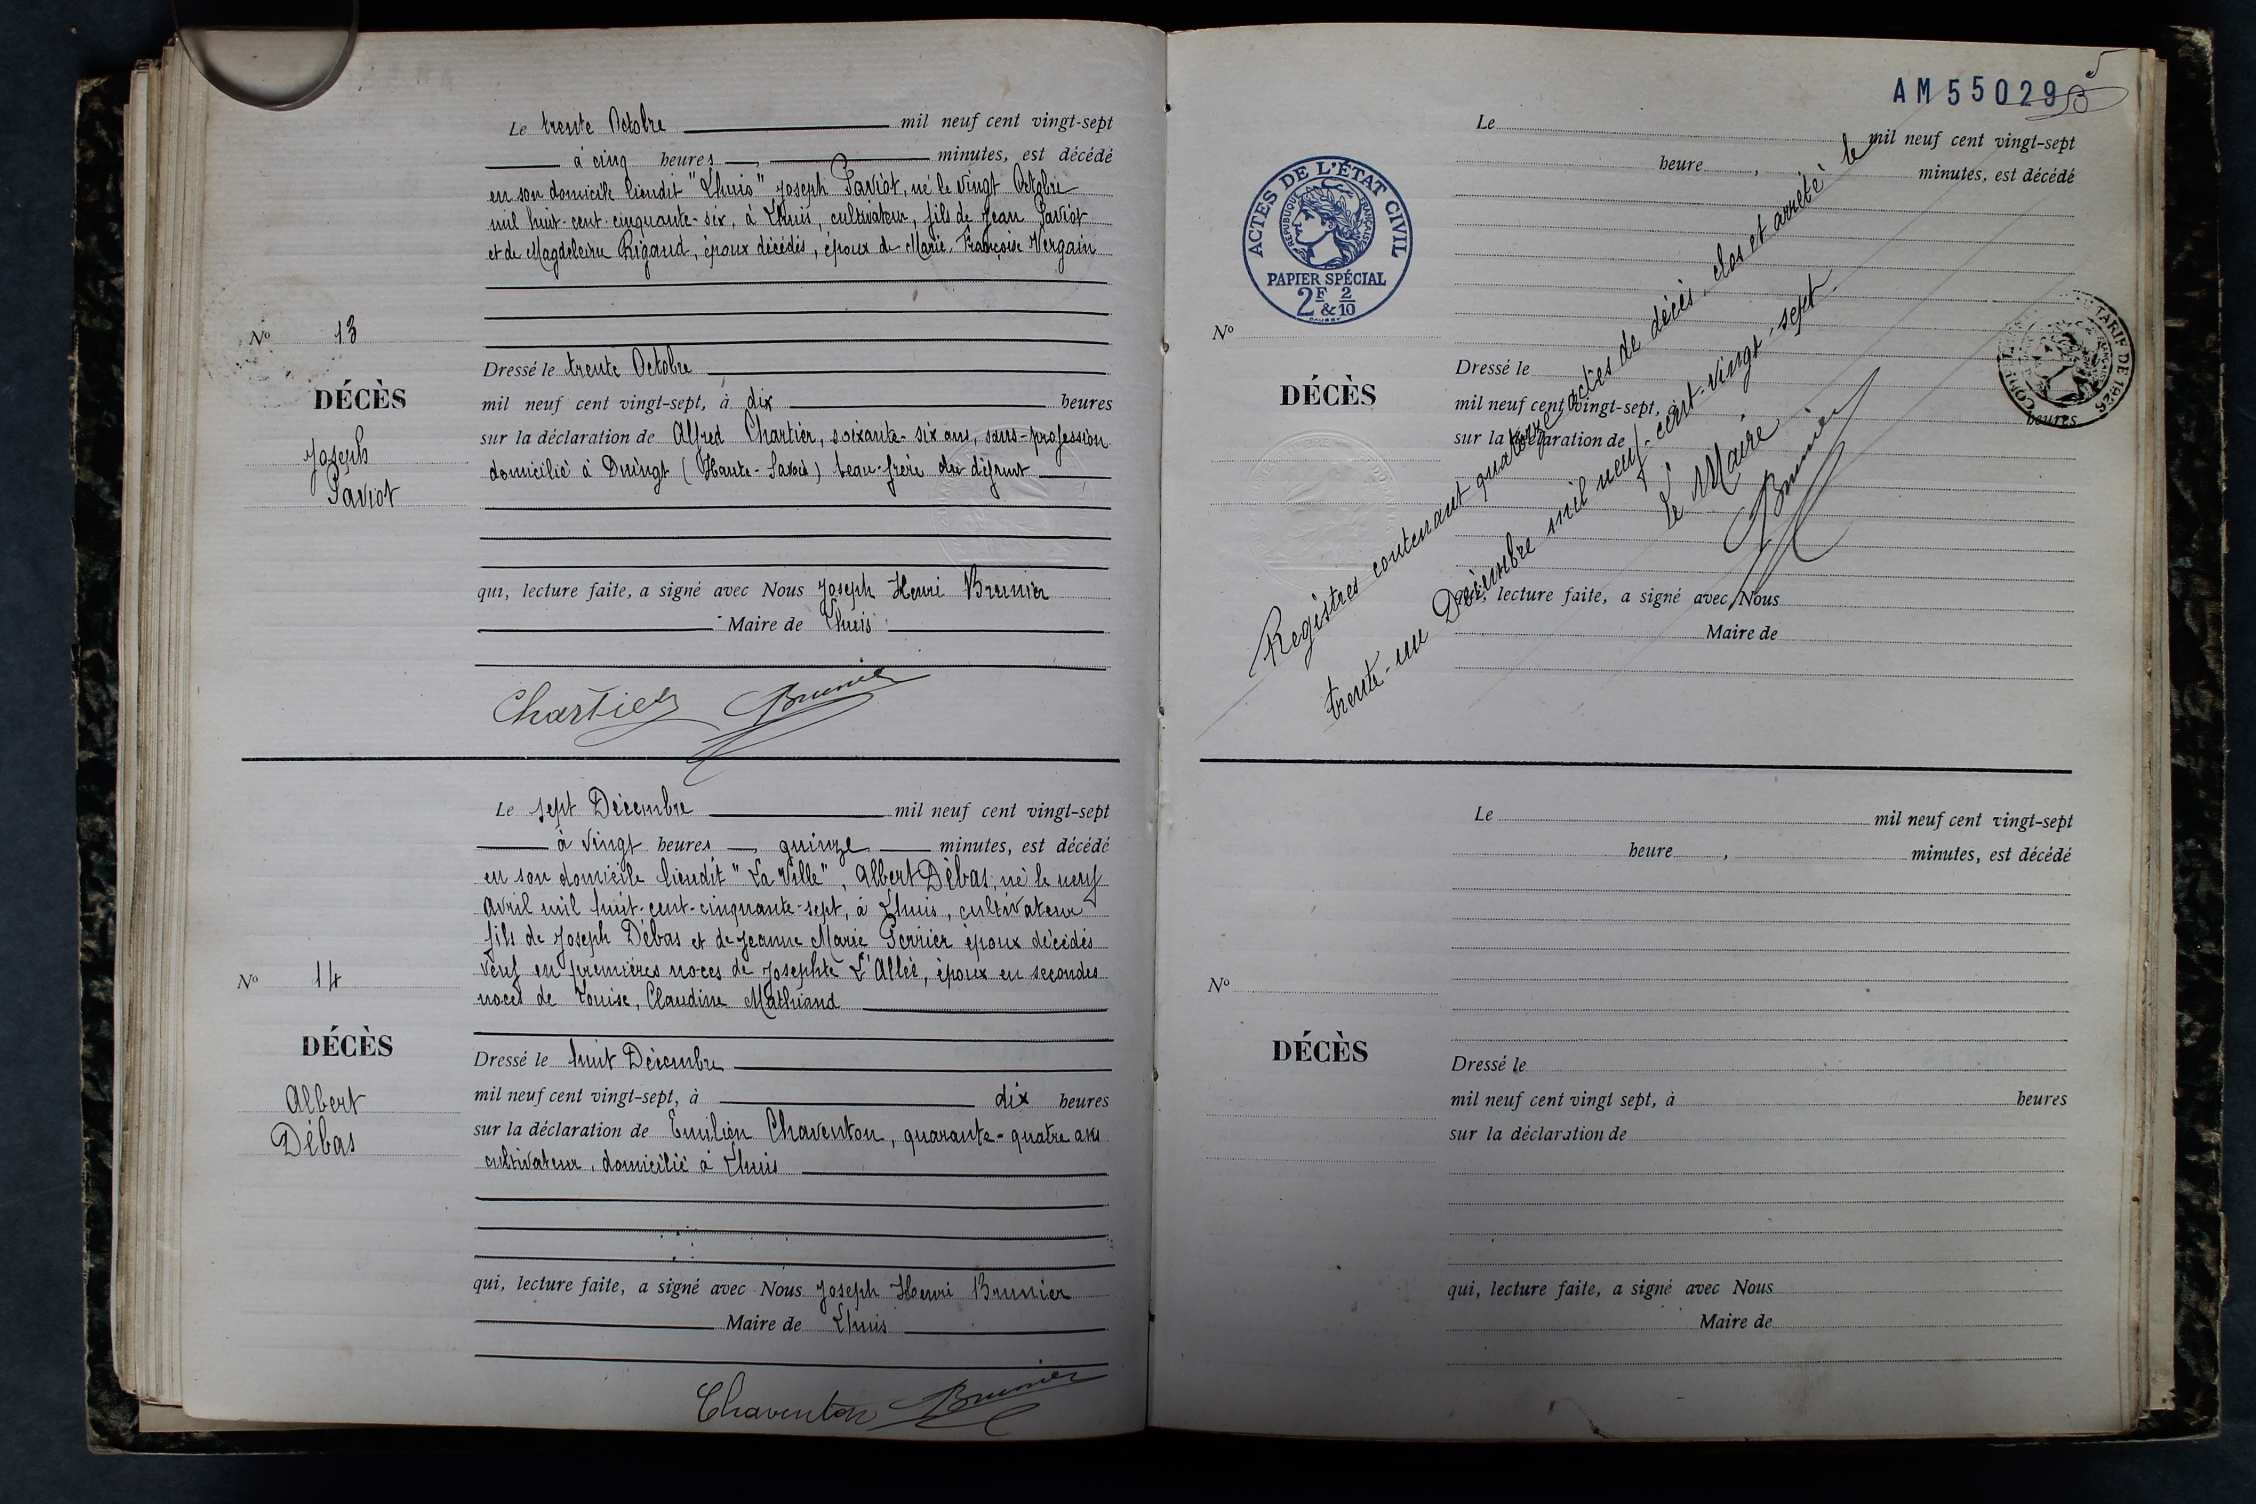 Le trente Octobre mil neuf cent vingt-sept
à cinq heures, minutes, est décédé
en son domicile lieudit "Lhuis" Joseph Paviot, né le vingt Octobre
mil huit-cent-cinquante-six, à Lhuis, cultivateur, fils de Jean Paviot
et de Magdeleine Rigaud, époux décédés, époux de Marie-Françoise Vergain
No 13
DÉCÈS
Joseph
Paviot
Dressé le trente Octobre
mil neuf cent vingt-sept, à dix heures
sur la déclaration de Alfred Chartier, soixante-six ans, sans-profession
domicilié à Duingt (Haute-Savoie) beau-frère du défunt
qui, lecture faite, a signé avec Nous Joseph Henri Brunier
Maire de Lhuis
Chartier Brunier
Le sept Décembre mil neuf cent vingt-sept
à vingt heures, quinze minutes, est décédé
en son domicile lieudit "La Ville", Albert Débas, né le neuf
Avril mil huit-cent-cinquante-sept, à Lhuis, cultivateur
fils de Joseph Débas et de Jeanne Marie Perrier époux décédés
veuf en premières noces de Josephte L'Allée, époux en secondes
noces de Louise, Claudine Mathiand
No 14
DÉCÈS
Albert
Débas
Dressé le huit Décembre
mil neuf cent vingt-sept, à dix heures
sur la déclaration de Emilien Chaventon, quarante-quatre ans
cultivateur, domicilié à Lhuis
qui, lecture faite, a signé avec Nous Joseph Henri Brunier
Maire de Lhuis
Chaventon Brunier
AM550295
Le mil neuf cent vingt-sept
heure, minutes, est décédé
ACTES DE L'ÉTAT CIVIL
RÉPUBLIQUE FRANÇAISE
PAPIER SPÉCIAL
2F & 2/10
TARIF DE 1926
No
DÉCÈS
Dressé le
mil neuf cent vingt-sept, à heures
sur la déclaration de
qui, lecture faite, a signé avec Nous
Maire de
Registres contenant quatorze actes de décès, clos et arrêté le
trente-un Décembre mil neuf-cent-vingt-sept.
Le Maire
Brunier
Le mil neuf cent vingt-sept
heure, minutes, est décédé
No
DÉCÈS
Dressé le
mil neuf cent vingt sept, à heures
sur la déclaration de
qui, lecture faite, a signé avec Nous
Maire de